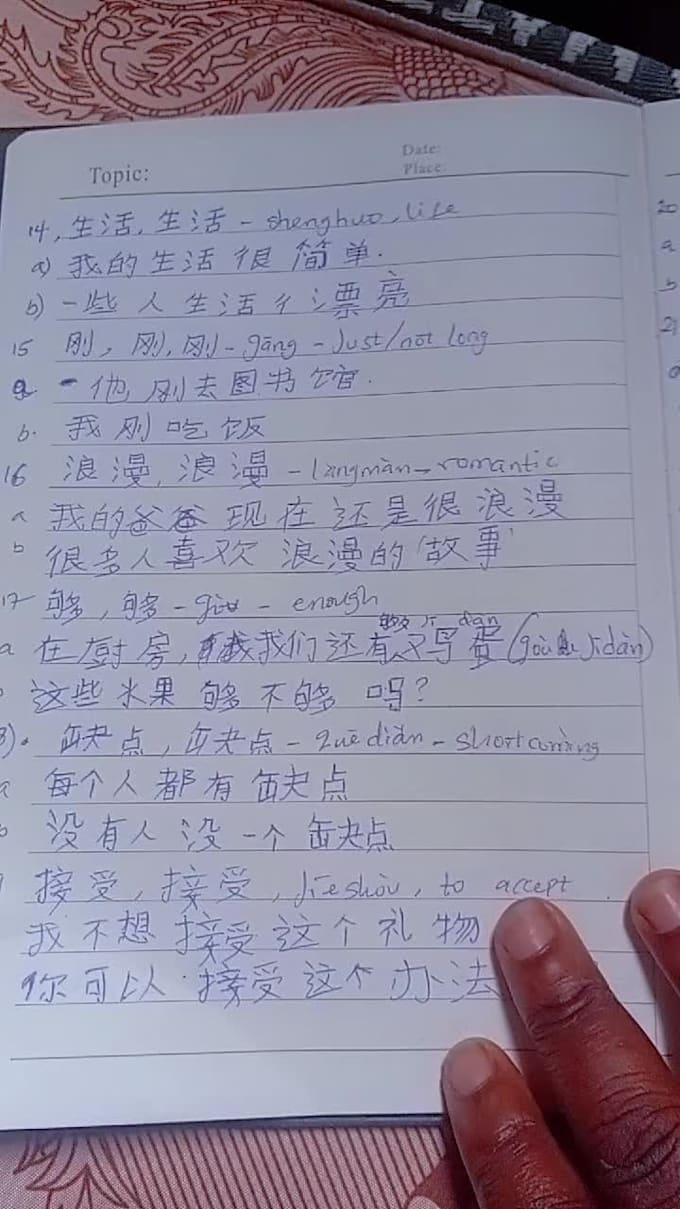 Topic:
Date:
Place:
14, 生活, 生活 - shenghuo, life
a) 我的生活很简单.
b) 一些人生活彳漂亮
15 刚, 刚, 刚 - gāng - Just/not long
a - 他刚去图书馆.
b. 我刚吃饭
16 浪漫, 浪漫 - làngmàn - romantic
a 我的爸爸现在还是很浪漫
b 很多人喜欢浪漫的故事
17 够, 够 - gòu - enough
够 jī dàn
a 在厨房, 我们还有鸡蛋 (gòu jīdàn)
这些水果够不够吗?
缺点, 缺点 - quēdiǎn - shortcoming
a 每个人都有缺点
没有人没一个缺点
接受, 接受, jiēshòu, to accept
我不想接受这个礼物
你可以接受这个办法
20
a
b
21